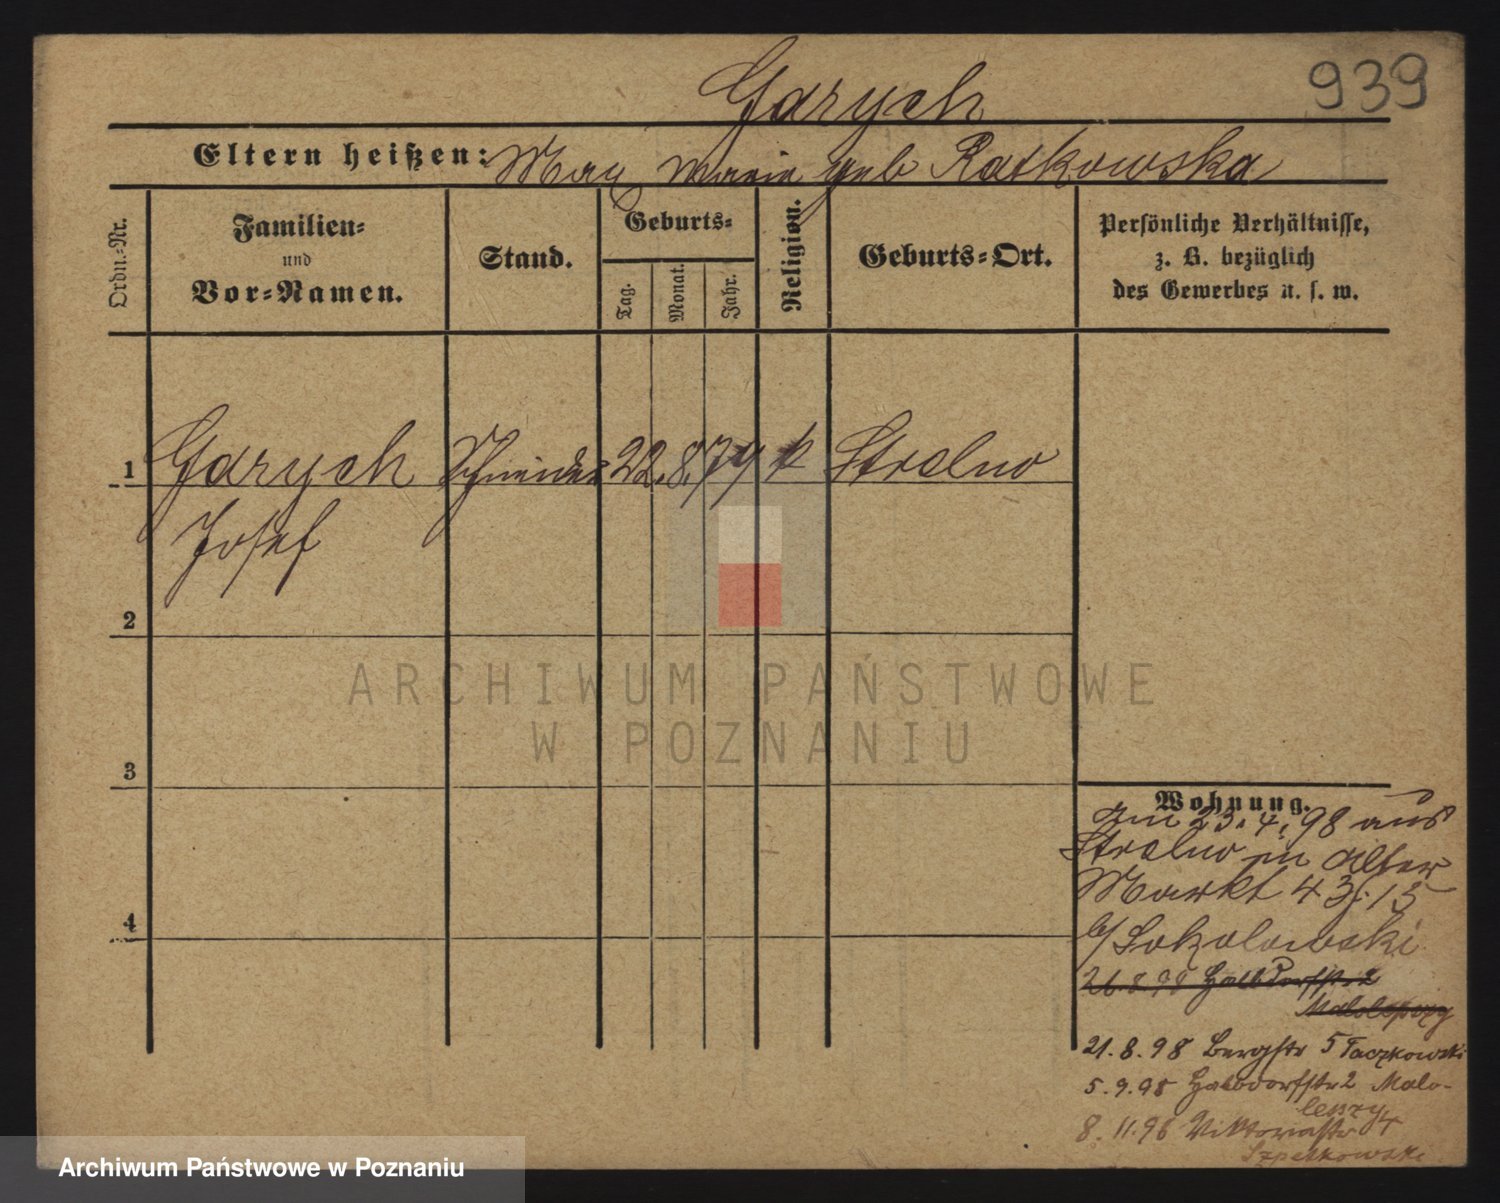 939
Garych
Eltern heißen: Max, Marie geb Ratkowska
Ordn.-Nr.
Familien-
und
Vor-Namen.
Stand.
Geburts-
Tag.
Monat.
Jahr.
Religion.
Geburts-Ort.
Persönliche Verhältnisse,
z. B. bezüglich
des Gewerbes u. s. w.
1 Garych Schneider 22. 8. 79 k Strelno
Josef
2
3
4
Wohnung.
Am 23. 4. 98 aus
Strelno in Alter
Markt 43 15
b/ Sokolowski
26.8.98 Halbdorfstr 2
21. 8. 98 Bergstr 5 Taczkowski
5. 9. 98 Halbdorfstr 2 Malo-
leszy
8. 11. 98 Viktoriastr
Szpetkowski
ARCHIWUM PAŃSTWOWE
W POZNANIU
Archiwum Państwowe w Poznaniu